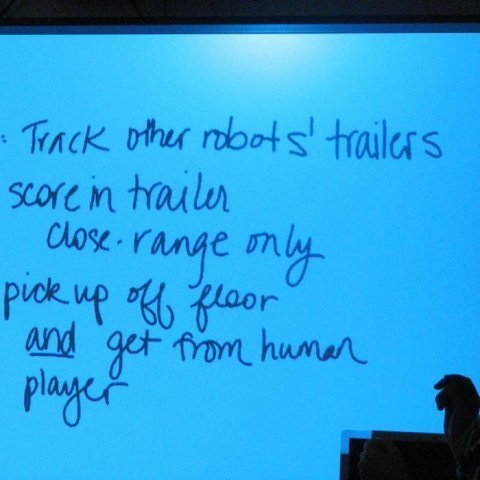 : Track other robots' trailers
score in trailer
close-range only
pick up off floor
and get from human
player